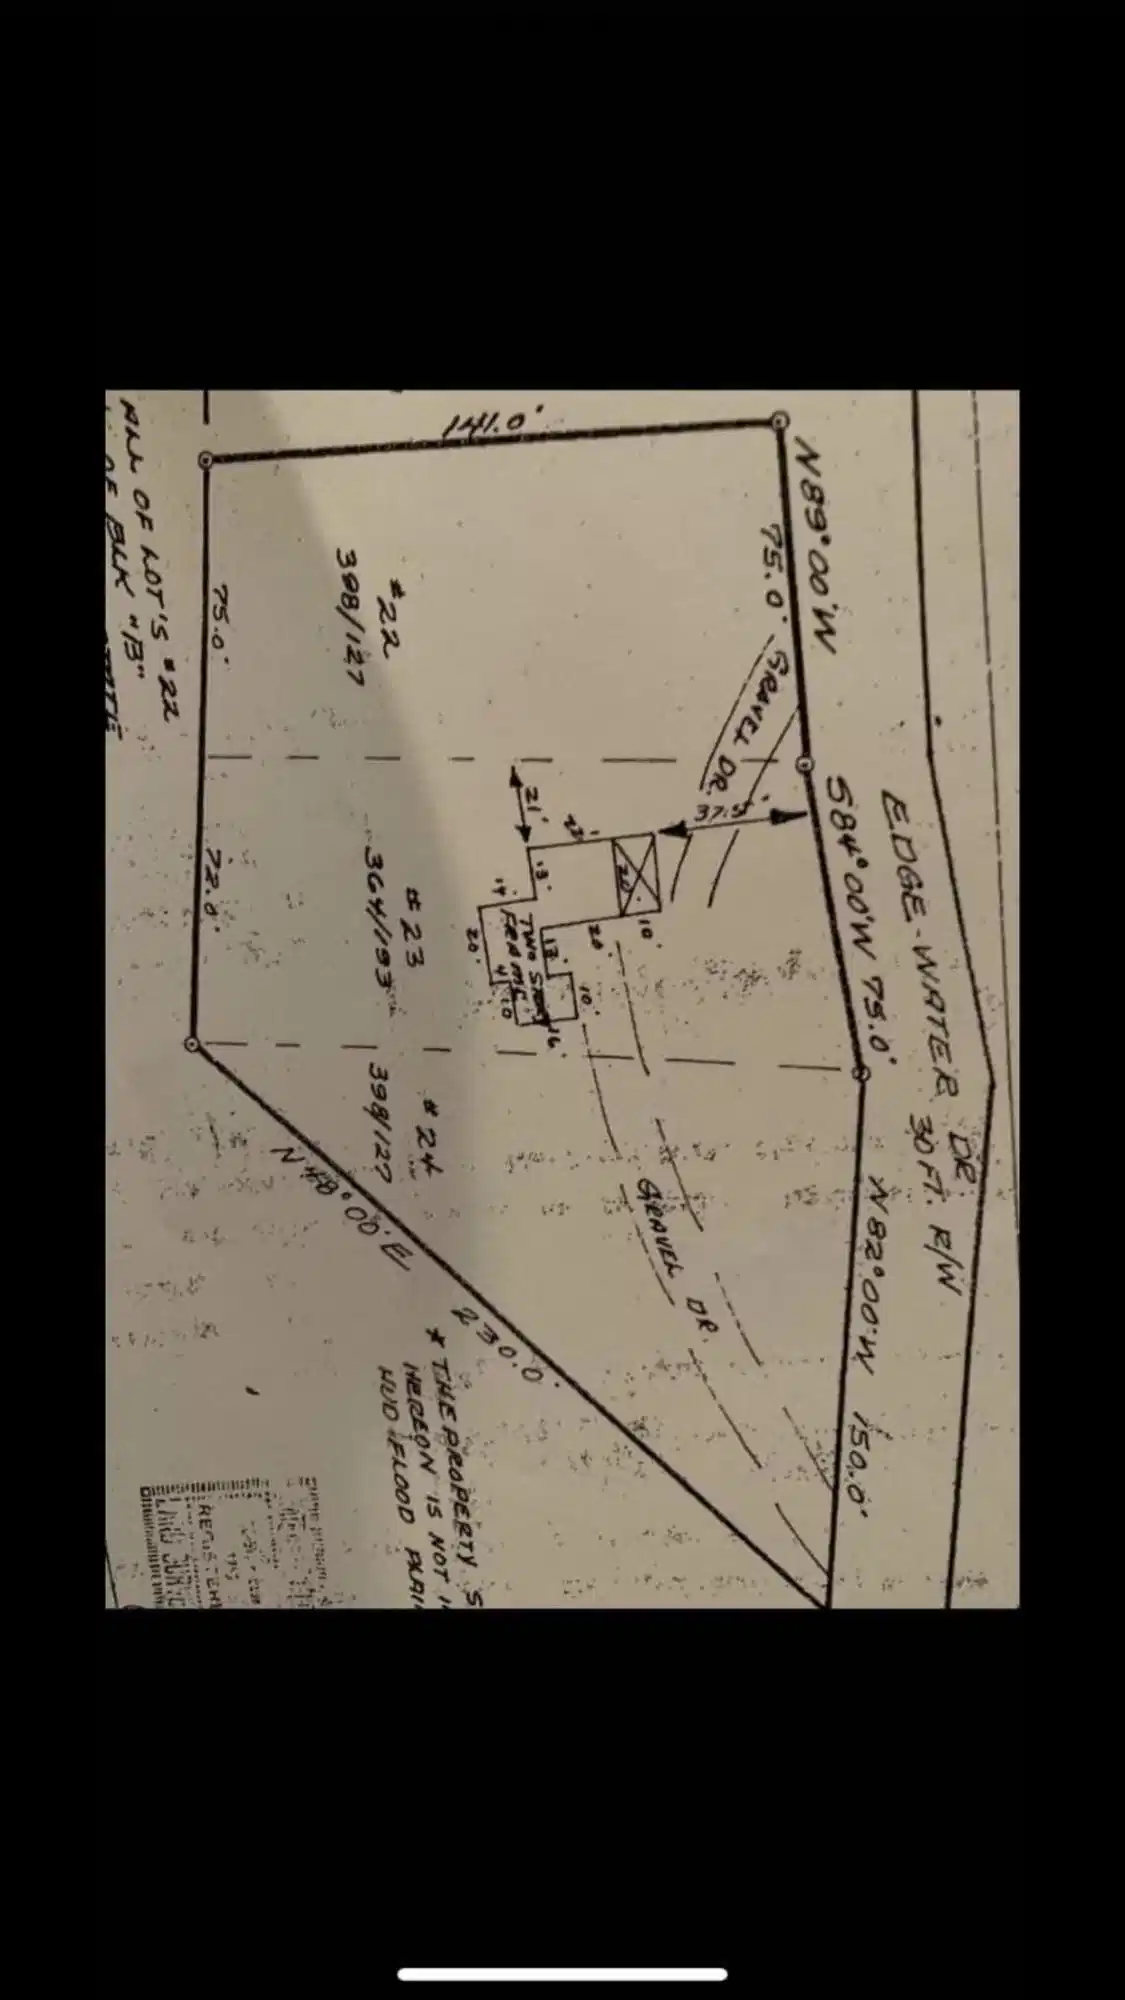 N89°00'W
75.0'
141.0'
GRAVEL DR.
37.5'
S84°00'W 75.0'
EDGE-WATER DR
30 FT. R/W
N82°00'W 150.0'
#22
398/127
75.0'
21'
13'
20'
10'
20'
12'
10'
16'
TWO STORY
FRAME
20'
4'
10
#23
364/193
72.0'
#24
398/127
GRAVEL DR.
N48°00'E
230.0'
ALL OF LOT'S #22
OF BLK "B"
* THE PROPERTY S
HEREON IS NOT I
HUD FLOOD PLAI